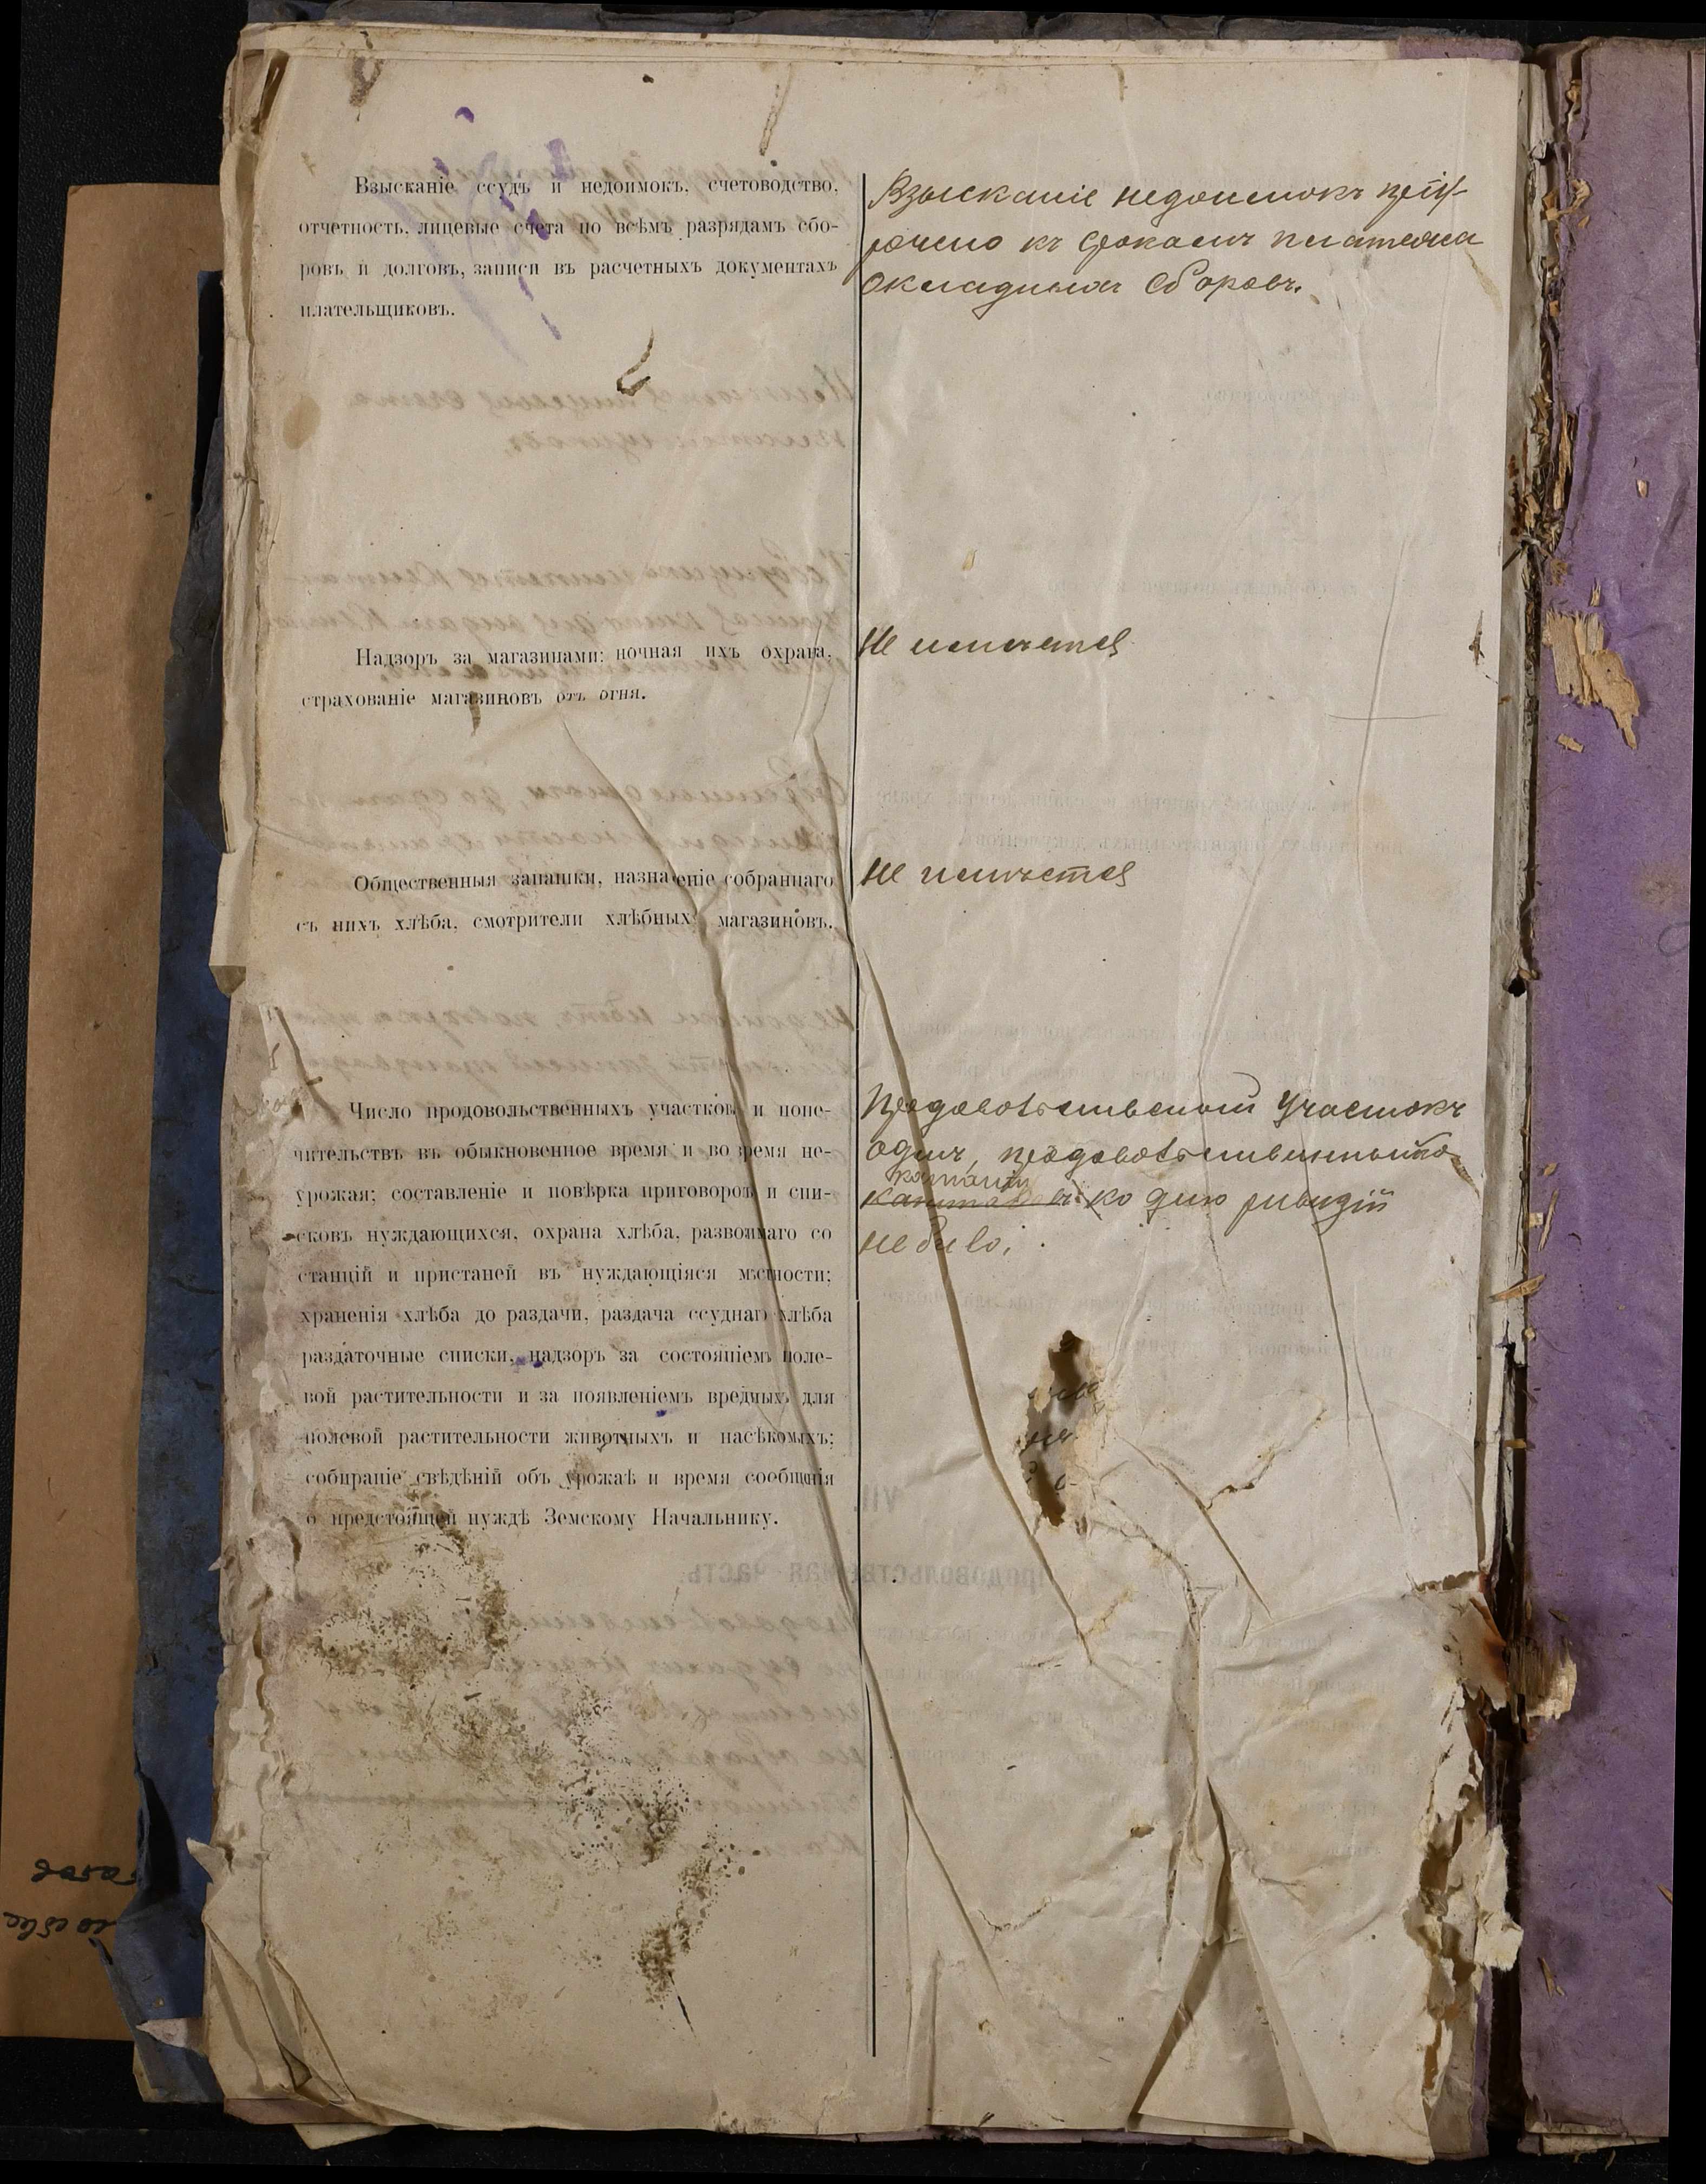 Взысканіе ссудъ и недоимокъ, счетоводство,
отчетность, лицевые счета по всѣмъ разрядамъ сбо-
ровъ и долговъ, записи въ расчетныхъ документахъ
плательщиковъ.
Взысканіе недоимокъ пріу-
рочено къ срокамъ платежа
окладныхъ сборовъ.
Надзоръ за магазинами: ночная ихъ охрана,
страхованіе магазиновъ отъ огня.
Не имѣется
Общественныя запашки, назначеніе собраннаго
съ нихъ хлѣба, смотрители хлѣбныхъ магазиновъ.
Не имѣется
Число продовольственныхъ участковъ и попе-
чительствъ въ обыкновенное время и во время не-
урожая; составленіе и повѣрка приговоровъ и спи-
сковъ нуждающихся, охрана хлѣба, развозимаго со
станцій и пристаней въ нуждающіяся мѣстности;
храненія хлѣба до раздачи, раздача ссуднаго хлѣба
раздаточные списки, надзоръ за состояніемъ поле-
вой растительности и за появленіемъ вредныхъ для
полевой растительности животныхъ и насѣкомыхъ;
собираніе свѣдѣній объ урожаѣ и время сообщенія
о предстоящей нуждѣ Земскому Начальнику.
Продовольственный участокъ
одинъ, продовольственныхъ
ко дню ревизіи
не было.